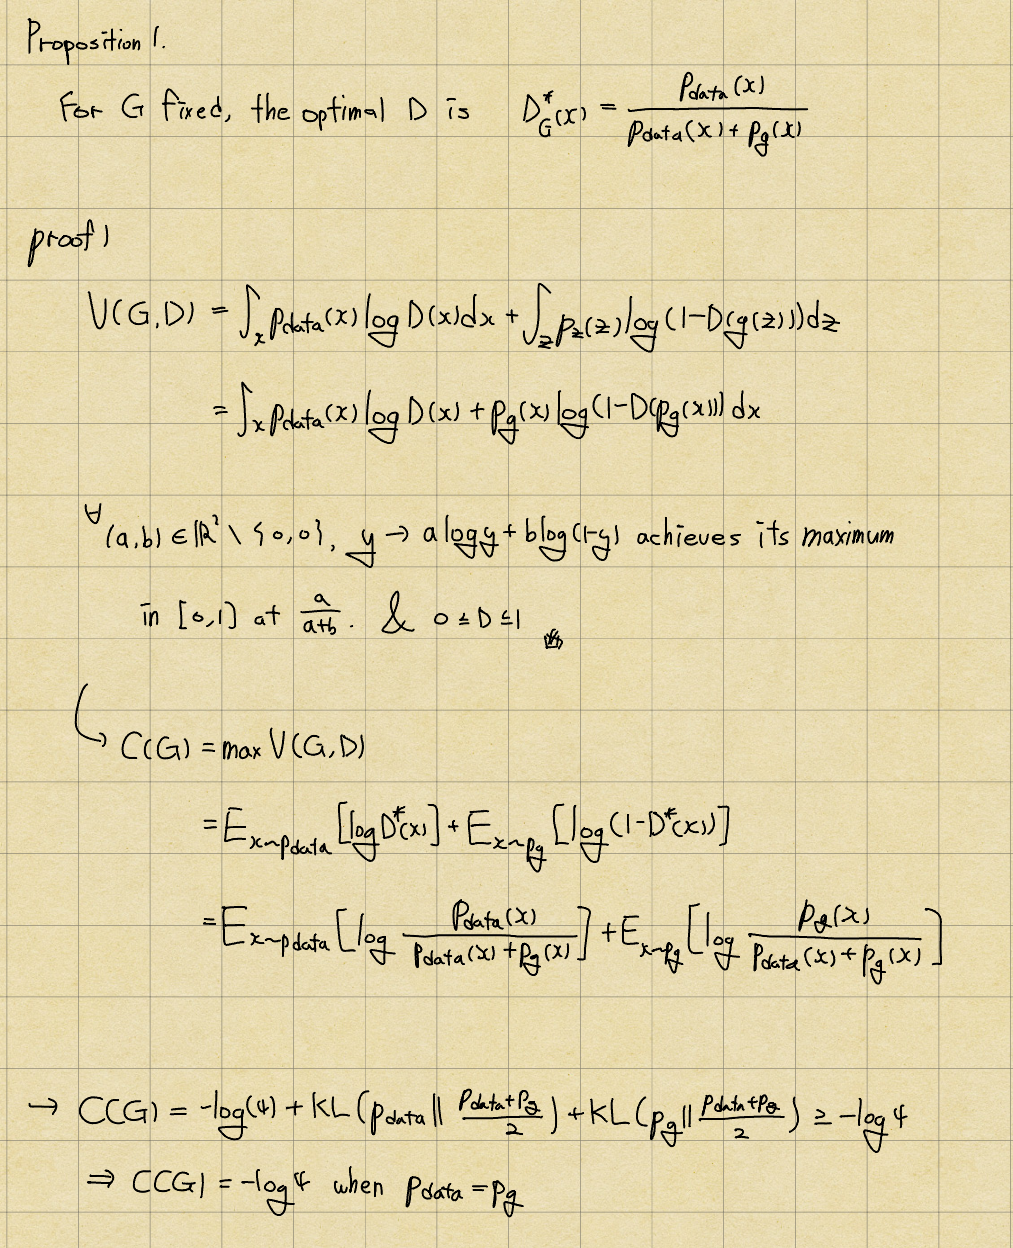 Proposition 1.
For G fixed, the optimal D is D*_G(x) = p_data(x) / (p_data(x) + p_g(x))
proof)
V(G,D) = ∫_x p_data(x) log D(x) dx + ∫_z p_z(z) log(1-D(g(z))) dz
= ∫_x p_data(x) log D(x) + p_g(x) log(1-D(p_g(x))) dx
∀(a,b) ∈ ℝ² \ {0,0}, y → a log y + b log(1-y) achieves its maximum
in [0,1] at a/(a+b). & 0 ≤ D ≤ 1
↳ C(G) = max V(G,D)
= E_{x~p_data} [log D*(x)] + E_{x~p_g} [log(1-D*(x))]
= E_{x~p_data} [log p_data(x) / (p_data(x) + p_g(x))] + E_{x~p_g} [log p_g(x) / (p_data(x) + p_g(x))]
→ C(G) = -log(4) + KL(p_data || (p_data + p_g)/2) + KL(p_g || (p_data + p_g)/2) ≥ -log 4
⇒ C(G) = -log 4 when p_data = p_g